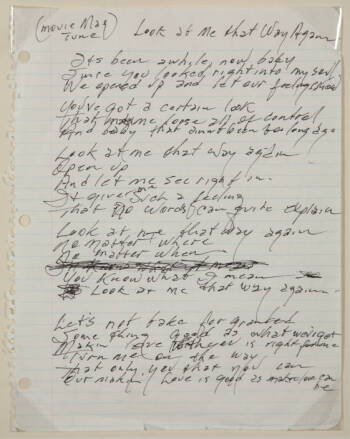 (Movie Mag Tune)
Look at Me that Way Again
Its been awhile, now baby
Since you looked right into my soul
We opened up and let our feelings show
You've got a certain look
That made me lose all of control
And baby that aint been so long ago
Look at me that way again
Open up
And let me see right in
It gives me such a feeling
That no words can quite explain
Look at me that way again
No matter where
No matter when
You know what I mean
Look at me that way again
Let's not take for granted
Something good as what we've got
Makin love with you is right for me
Turn me on the way
That only you that now can
Our makin love is good as make love can be